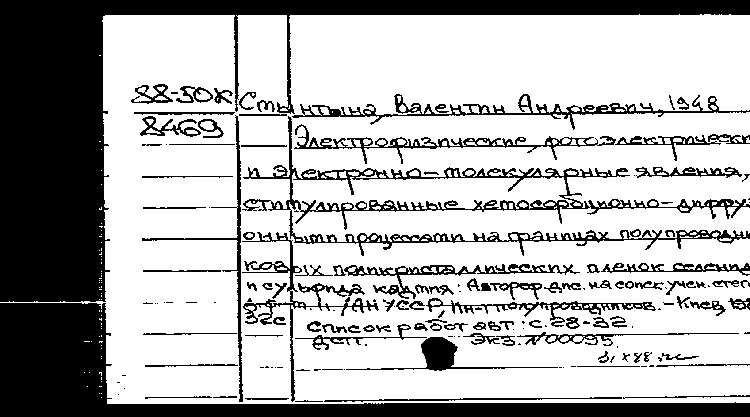 88-50К Стынтына, Валентин Андреевич, 1948
8469 Электрофизические, фотоэлектрическ
и электронно-молекулярные явления,
стимулированные хемосорбционно-диффуз
онными процессами на границах полупроводни
ковых поликристаллических пленок селенид
и сульфида кадмия: Автореф. дис. на соиск. учен. степ
д. ф.-м. н. /АН УССР, Ин-т полупроводников. - Киев, 198
32с
Список работ авт.: с. 28-32.
ДСП. Экз. №00095.